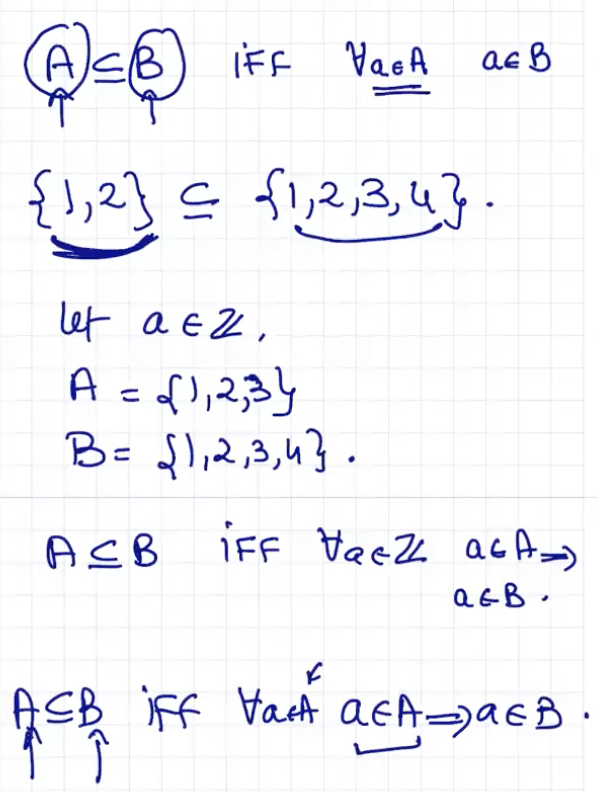 A ⊆ B iff ∀a∈A a∈B
{1,2} ⊆ {1,2,3,4}.
let a ∈ ℤ,
A = {1,2,3}
B = {1,2,3,4}.
A ⊆ B iff ∀a∈ℤ a∈A ⇒
a∈B.
A⊆B iff ∀a∈A a∈A ⇒ a∈B.